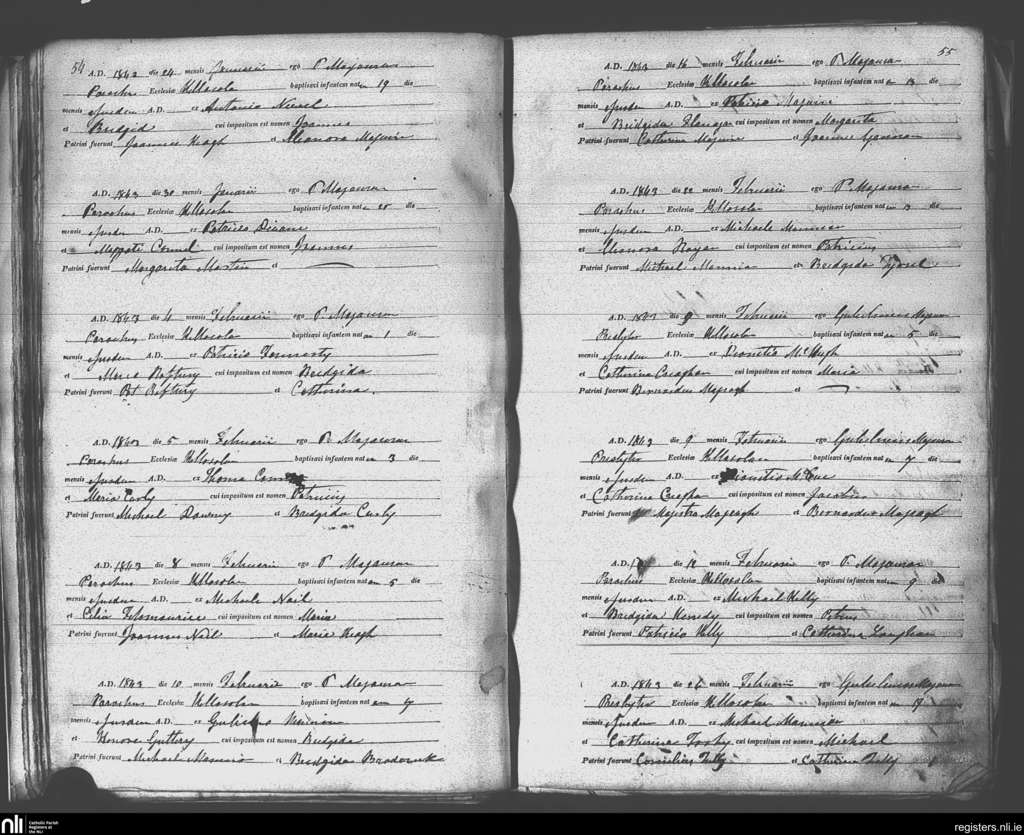 54
A.D. 1843 die 24 mensis Januarii ego P Magauran
Parochus Ecclesiæ Killosolan baptisavi infantem nat 19 die
mensis ejusdem A.D. ex Antonio
et Bridgid cui impositum est nomen Joannes
Patrini fuerunt Joannes Keogh et Eleanora Maguire
A.D. 1843 die 30 mensis Januarii ego P Magauran
Parochus Ecclesiæ Killosolan baptisavi infantem nat 28 die
mensis ejusdem A.D. ex Patricio
et cui impositum est nomen Joannes
Patrini fuerunt Margarita Martin et
A.D. 1843 die 4 mensis Februarii ego P. Magauran
Parochus Ecclesiæ Killosolan baptisavi infantem nat 1 die
mensis ejusdem A.D. ex Patricio
et Maria Raftery cui impositum est nomen Bridgida
Patrini fuerunt Pt Raftery et Catherina
A.D. 1843 die 5 mensis Februarii ego P. Magauran
Parochus Ecclesiæ Killosolan baptisavi infantem nat 3 die
mensis ejusdem A.D. ex Thoma
et Maria cui impositum est nomen Patricius
Patrini fuerunt Michael Downey et Bridgida Curly
A.D. 1843 die 8 mensis Februarii ego P Magauran
Parochus Ecclesiæ Killosolan baptisavi infantem nat 5 die
mensis ejusdem A.D. ex Michaele Nail
et Celia Fitzmaurice cui impositum est nomen Maria
Patrini fuerunt Joannes Neil et Maria Keogh
A.D. 1843 die 10 mensis Februarii ego P Magauran
Parochus Ecclesiæ Killosolan baptisavi infantem nat die
mensis ejusdem A.D. ex Gulielmo
et Honora cui impositum est nomen Bridgida
Patrini fuerunt Michael et Bridgida Broderick
55
A.D. 1843 die 16 mensis Februarii ego P Magauran
Parochus Ecclesiæ Killosolan baptisavi infantem nat 13 die
mensis ejusdem A.D. ex Patricio Maguire
et Bridgida Flanagan cui impositum est nomen Margarita
Patrini fuerunt Catherina Maguire et Joannes
A.D. 1843 die 22 mensis Februarii ego P. Magauran
Parochus Ecclesiæ Killosolan baptisavi infantem nat 13 die
mensis ejusdem A.D. ex Michaele Mannion
et Eleonora cui impositum est nomen Patricius
Patrini fuerunt Michael Mannion et Bridgida
A.D. die 9 mensis Februarii ego Gulielmus Magauran
Presbyter Ecclesiæ Killosolan baptisavi infantem nat 5 die
mensis ejusdem A.D. ex Dionitio McHugh
et Catherina Creaghan cui impositum est nomen Maria
Patrini fuerunt Bernardus Mageagh et
A.D. 1843 die 9 mensis Februarii ego Gulielmus Magauran
Presbyter Ecclesiæ Killosolan baptisavi infantem nat 7 die
mensis ejusdem A.D. ex Dionitio
et Catherina cui impositum est nomen Jacobus
Patrini fuerunt Mageagh et Bernardus Mageagh
A.D. die 12 mensis Februarii ego P. Magauran
Parochus Ecclesiæ Killosolan baptisavi infantem nat 9 die
mensis ejusdem A.D. ex Michael Kelly
et Bridgida cui impositum est nomen Petrus
Patrini fuerunt Patricio Kelly et Catherina
A.D. 1843 die mensis Februarii ego Gulielmus Magauran
Presbyter Ecclesiæ Killosolan baptisavi infantem nat 17 die
mensis ejusdem A.D. ex Michael Mannion
et Catherina cui impositum est nomen Michael
Patrini fuerunt Cornelius Tully et Catherina Tully
nli
Catholic Parish
Registers at
the NLI
registers.nli.ie